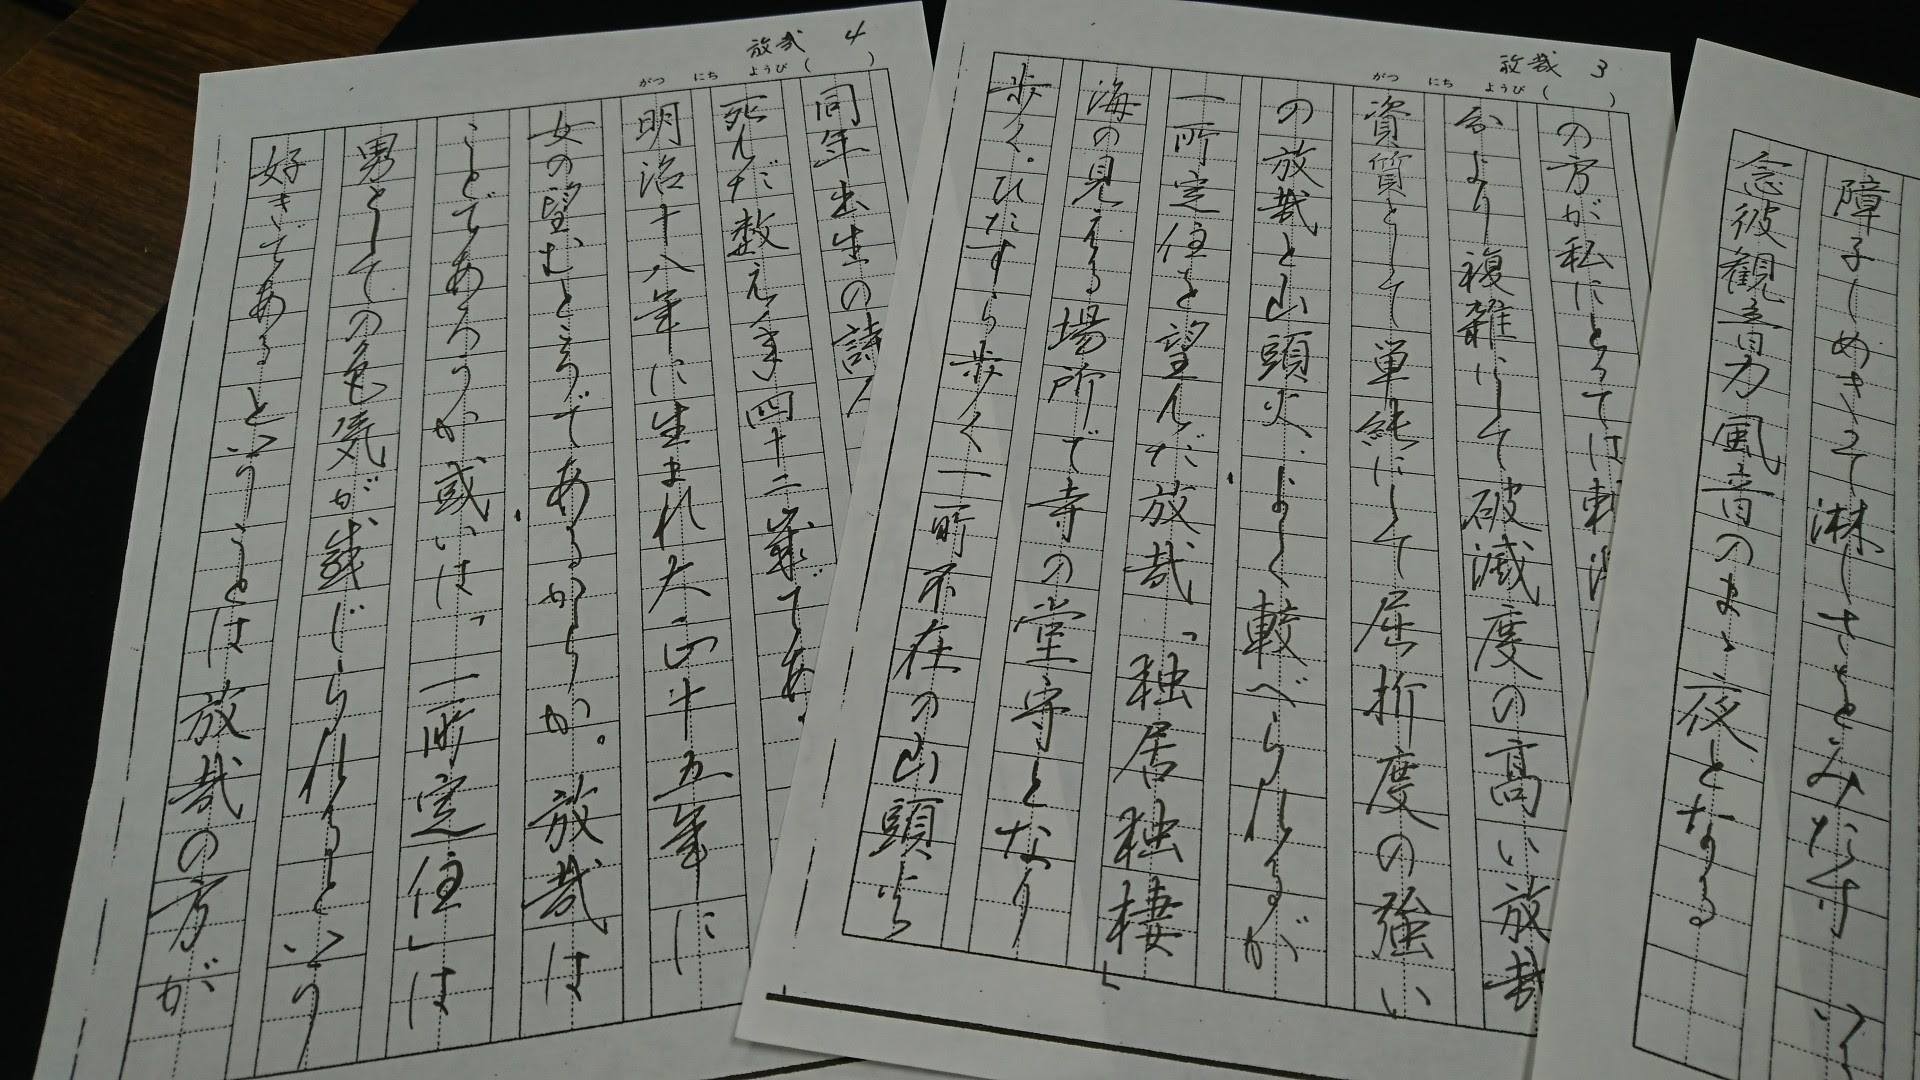 念彼観音力風音のまゝ夜となる
障子しめきって淋しさをみたす
放哉 3
がつ にち ようび ( )
歩く、ひたすら歩く一所不在の山頭火
海の見える場所で寺の堂守となり
一所定住を望んだ放哉「独居独棲」
の放哉と山頭火、よく較べられるが
資質として単純にして屈折度の強い
より複雑にして破滅度の高い放哉
の方が私にとっては
放哉 4
がつ にち ようび ( )
好きであるということは放哉の方が
男としての色気が感じられるという
ことであろうか或いは、「一所定住」は
女の望むところであるからか。放哉は
明治十八年に生まれ大正十五年に
死んだ数え年四十二歳であ
同年出生の詩人